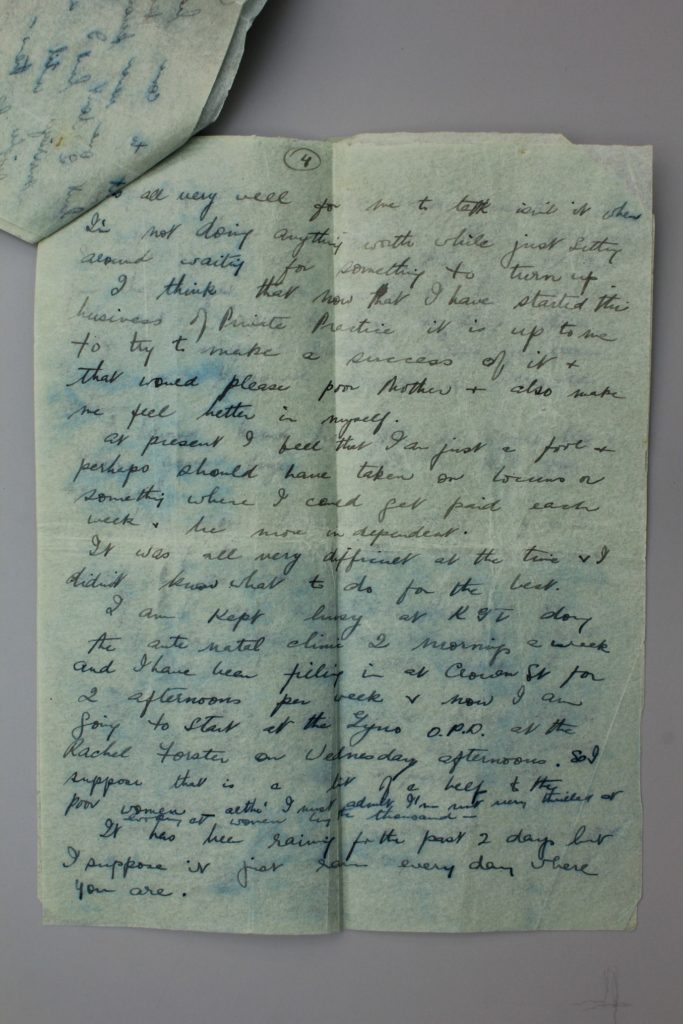 4
to all very well for me to talk isn't it when
I'm not doing anything worth while just sitting
around waiting for something to turn up.
I think that now that I have started this
business of Private Practice it is up to me
to try to make a success of it +
that would please poor Mother + also make
me feel better in myself.
At present I feel that I am just a fool +
perhaps should have taken on locums or
something where I could get paid each
week & be more independent.
It was all very difficult at the time & I
didn't know what to do for the best.
I am kept busy at doing
the ante natal clinic 2 mornings a week
and I have been filling in at Crown St for
2 afternoons per week & now I am
going to start at the Gyno O.P.D. at the
Rachel Forster on Wednesday afternoons. So I
suppose that is a bit of a help to the
poor women altho' I must admit I'm not very thrilled at
looking at women by the thousand —
It has been raining for the past 2 days but
I suppose it just rains every day where
you are.